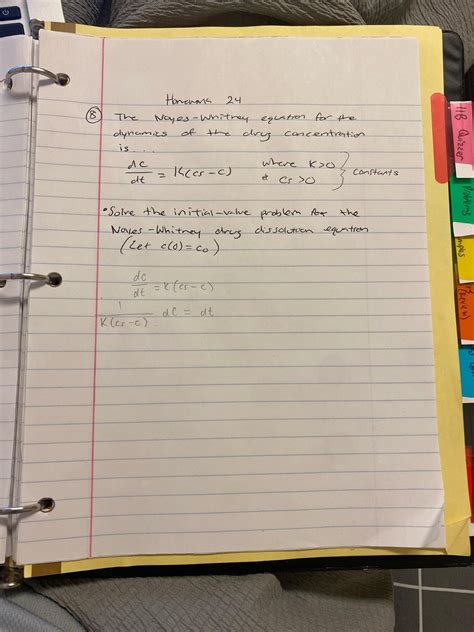 Homework 24
8 The Noyes-Whitney equation for the
dynamics of the drug concentration
is ...
dc/dt = K(cs-c) where K>0 & Cs>0 } constants
• Solve the initial-value problem for the
Noyes-Whitney drug dissolution equation
(Let c(0)=c₀)
dc/dt = K(cs-c)
1/K(cs-c) dC = dt
HB Quizzes